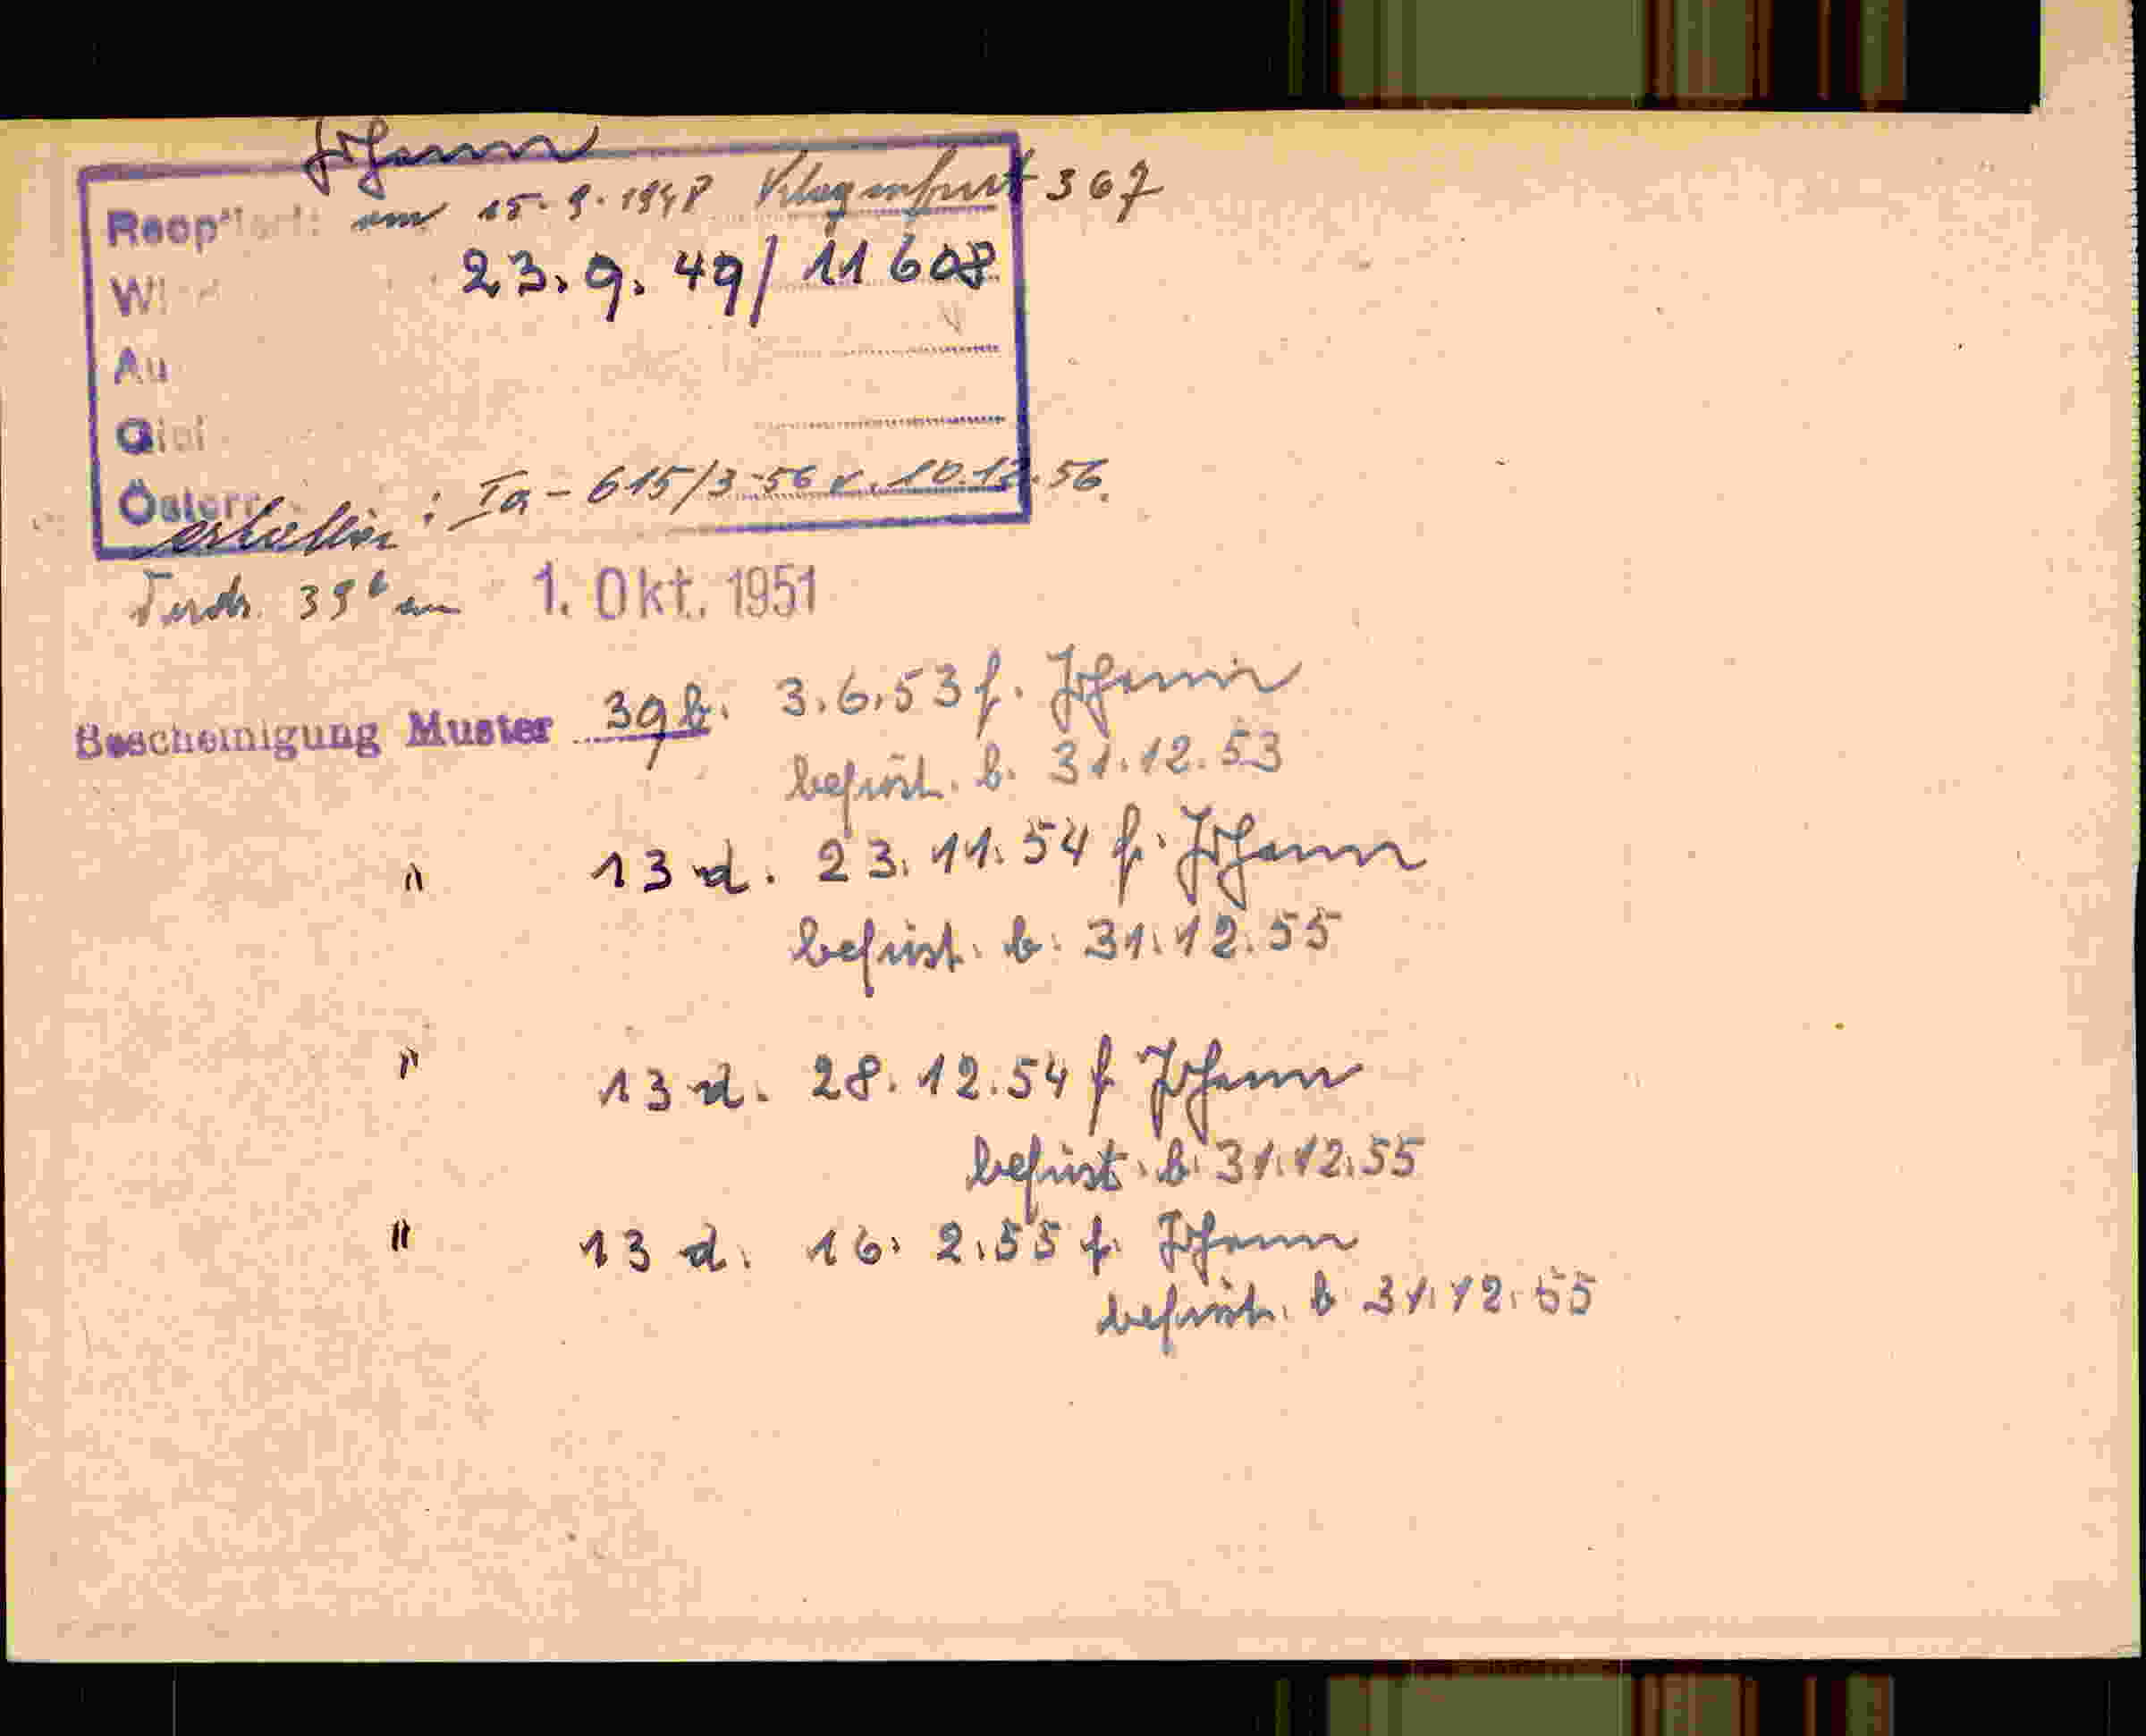 Johann
Reoptiert: am 15.9.1948 Klagenfurt 367
23.9.49/11608
Österr
erhalten: Ia-615/3-56 v. 10.12.56.
39b am 1. Okt. 1951
Bescheinigung Muster 39b. 3.6.53 f. Johann
befrist. b. 31.12.53
" 13 d. 23.11.54 f. Johann
befrist. b. 31.12.55
" 13 d. 28.12.54 f Johann
befrist. b. 31.12.55
" 13 d. 16.2.55 f. Johann
befrist. b 31.12.55